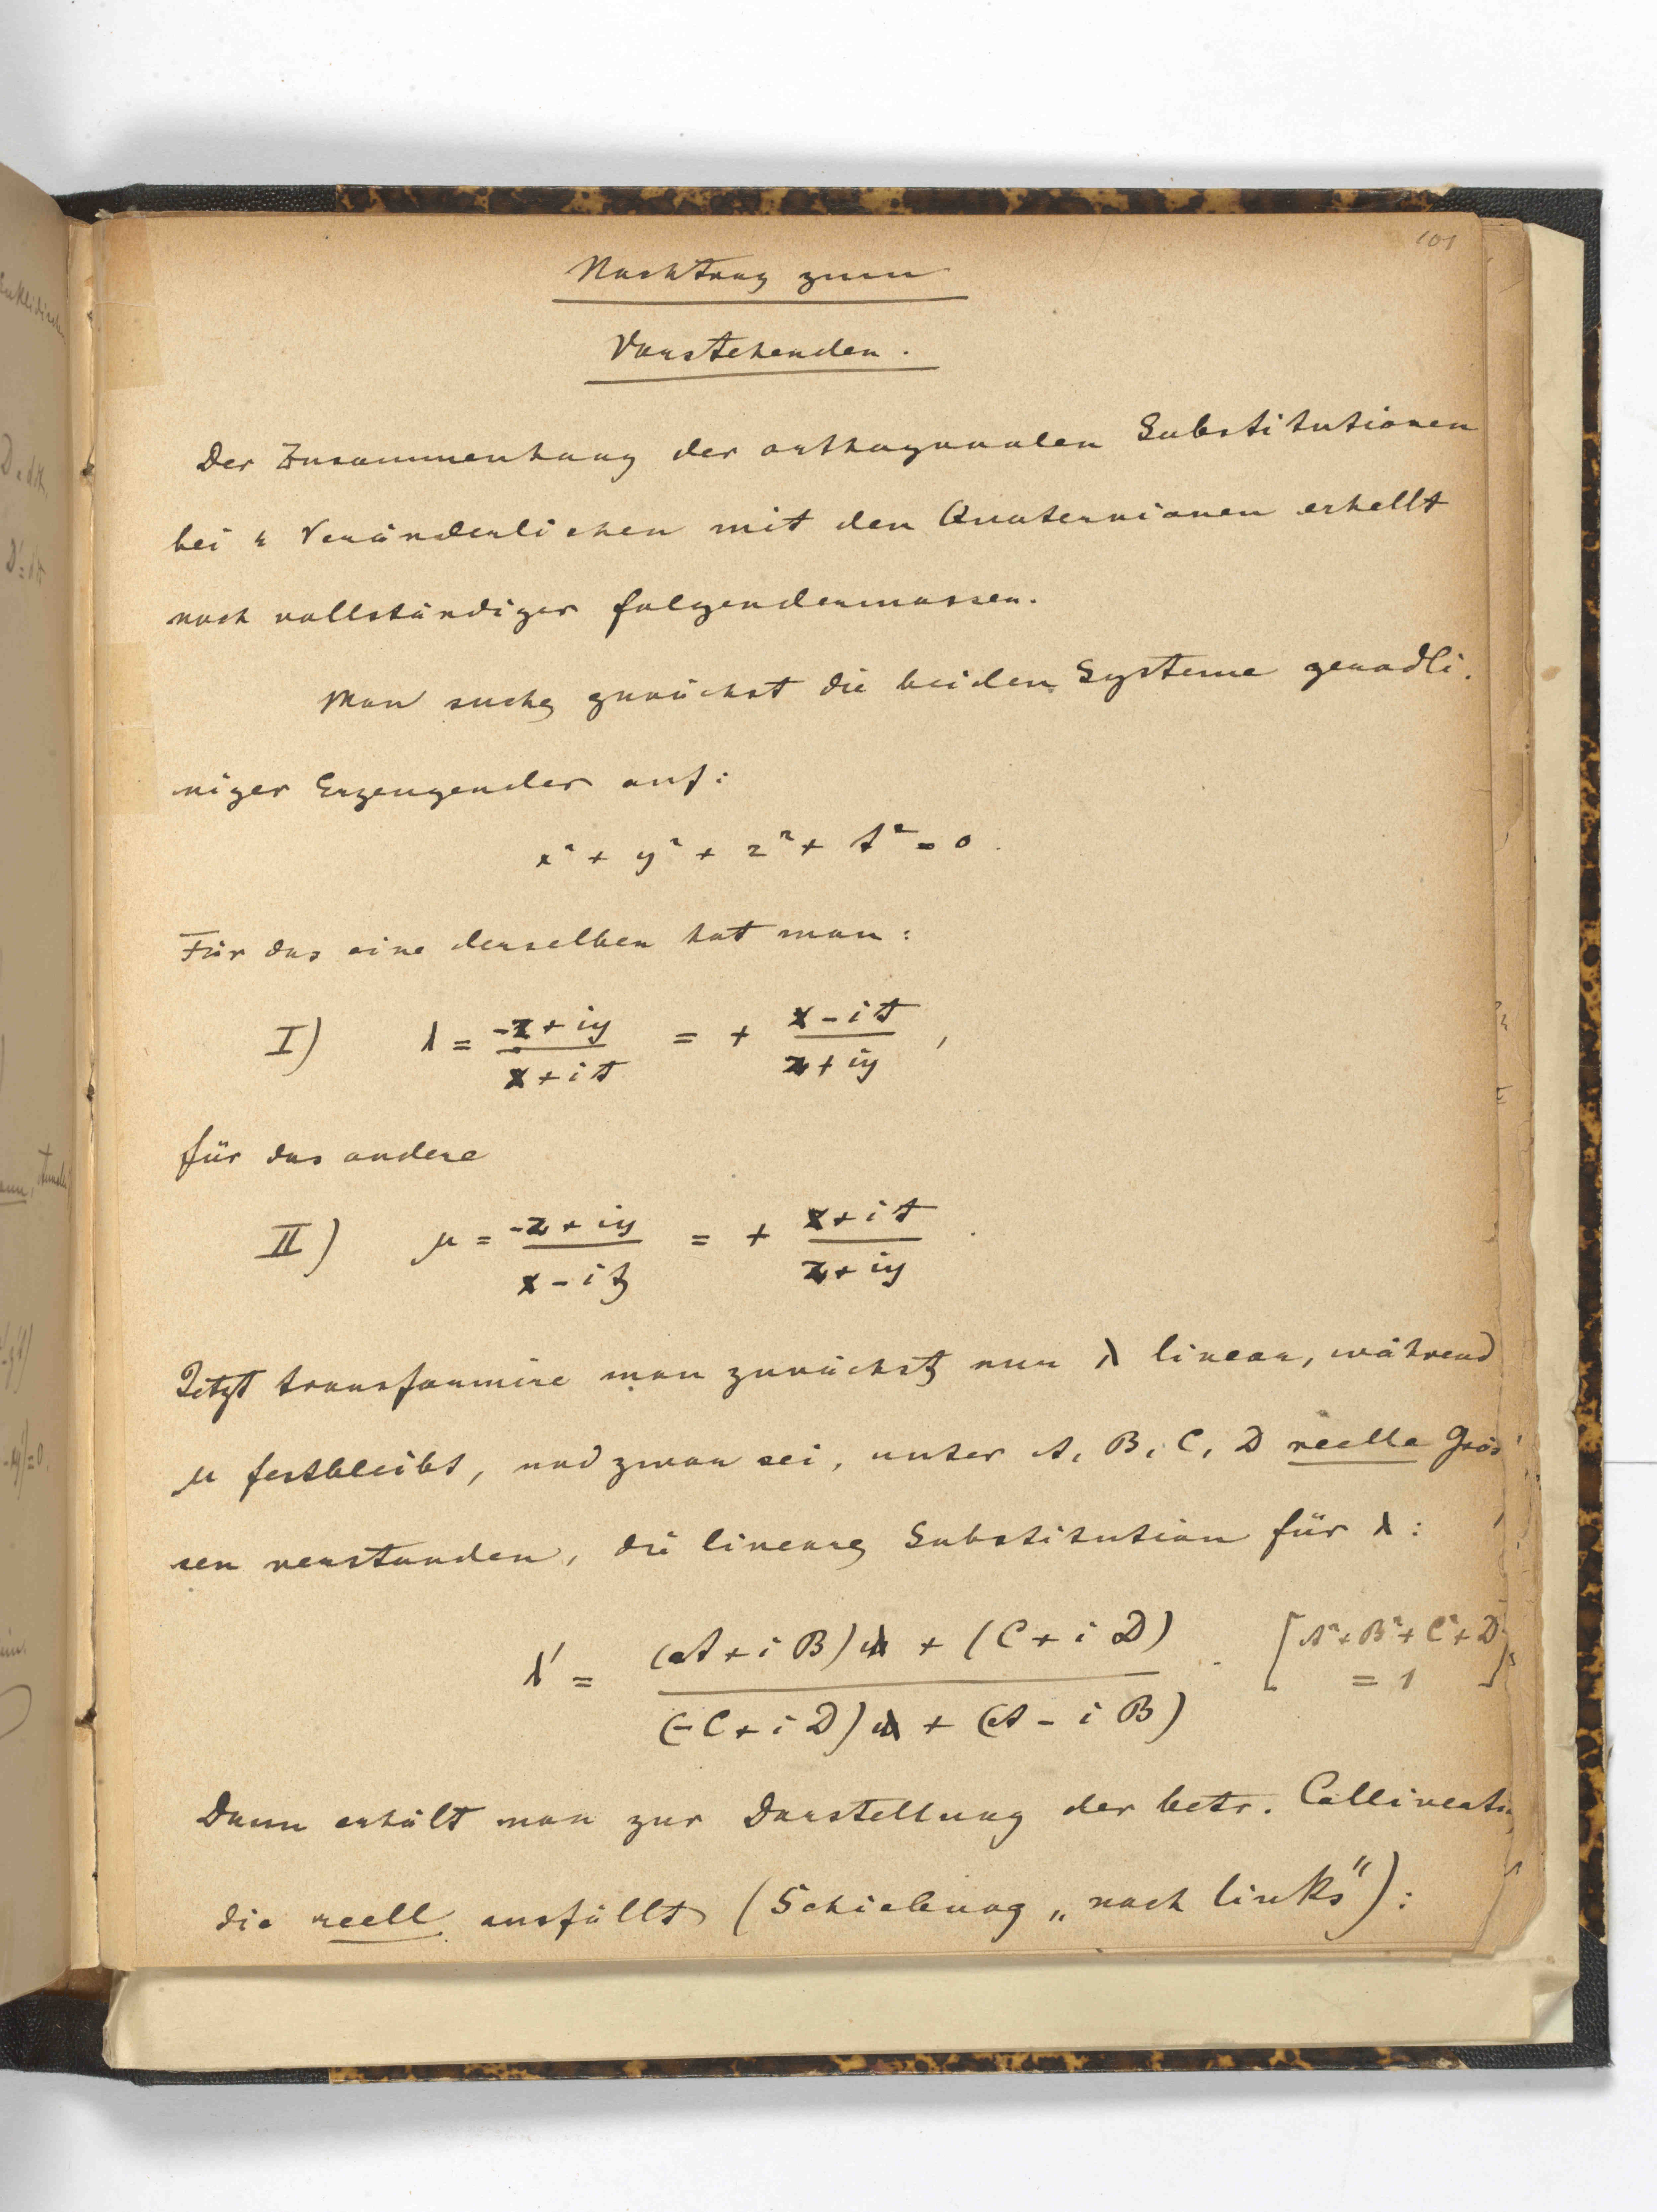 101
Nachtrag zum
Vorstehenden.
Der Zusammenhang der orthogonalen Substitutionen
bei 4 Veränderlichen mit den Quaternionen erhellt
noch vollständiger folgendermassen.
Man suche zunächst die beiden Systeme geradli-
niger Erzeugender auf:
x² + y² + z² + t² = 0.
Für das eine derselben hat man:
I) λ = (-z + iy)/(x + it) = + (x - it)/(z + iy),
für das andere
II) μ = (-z + iy)/(x - it) = + (x + it)/(z + iy).
Jetzt transformire man zunächst nur λ linear, während
μ festbleibt, und zwar sei, unter A, B, C, D reelle Grös-
sen verstanden, die lineare Substitution für λ:
λ' = ((A + iB)λ + (C + iD))/((-C + iD)λ + (A - iB)). [A² + B² + C² + D² = 1]
Dann erhält man zur Darstellung der betr. Collineation
die reell ausfällt (Schiebung „nach links"):